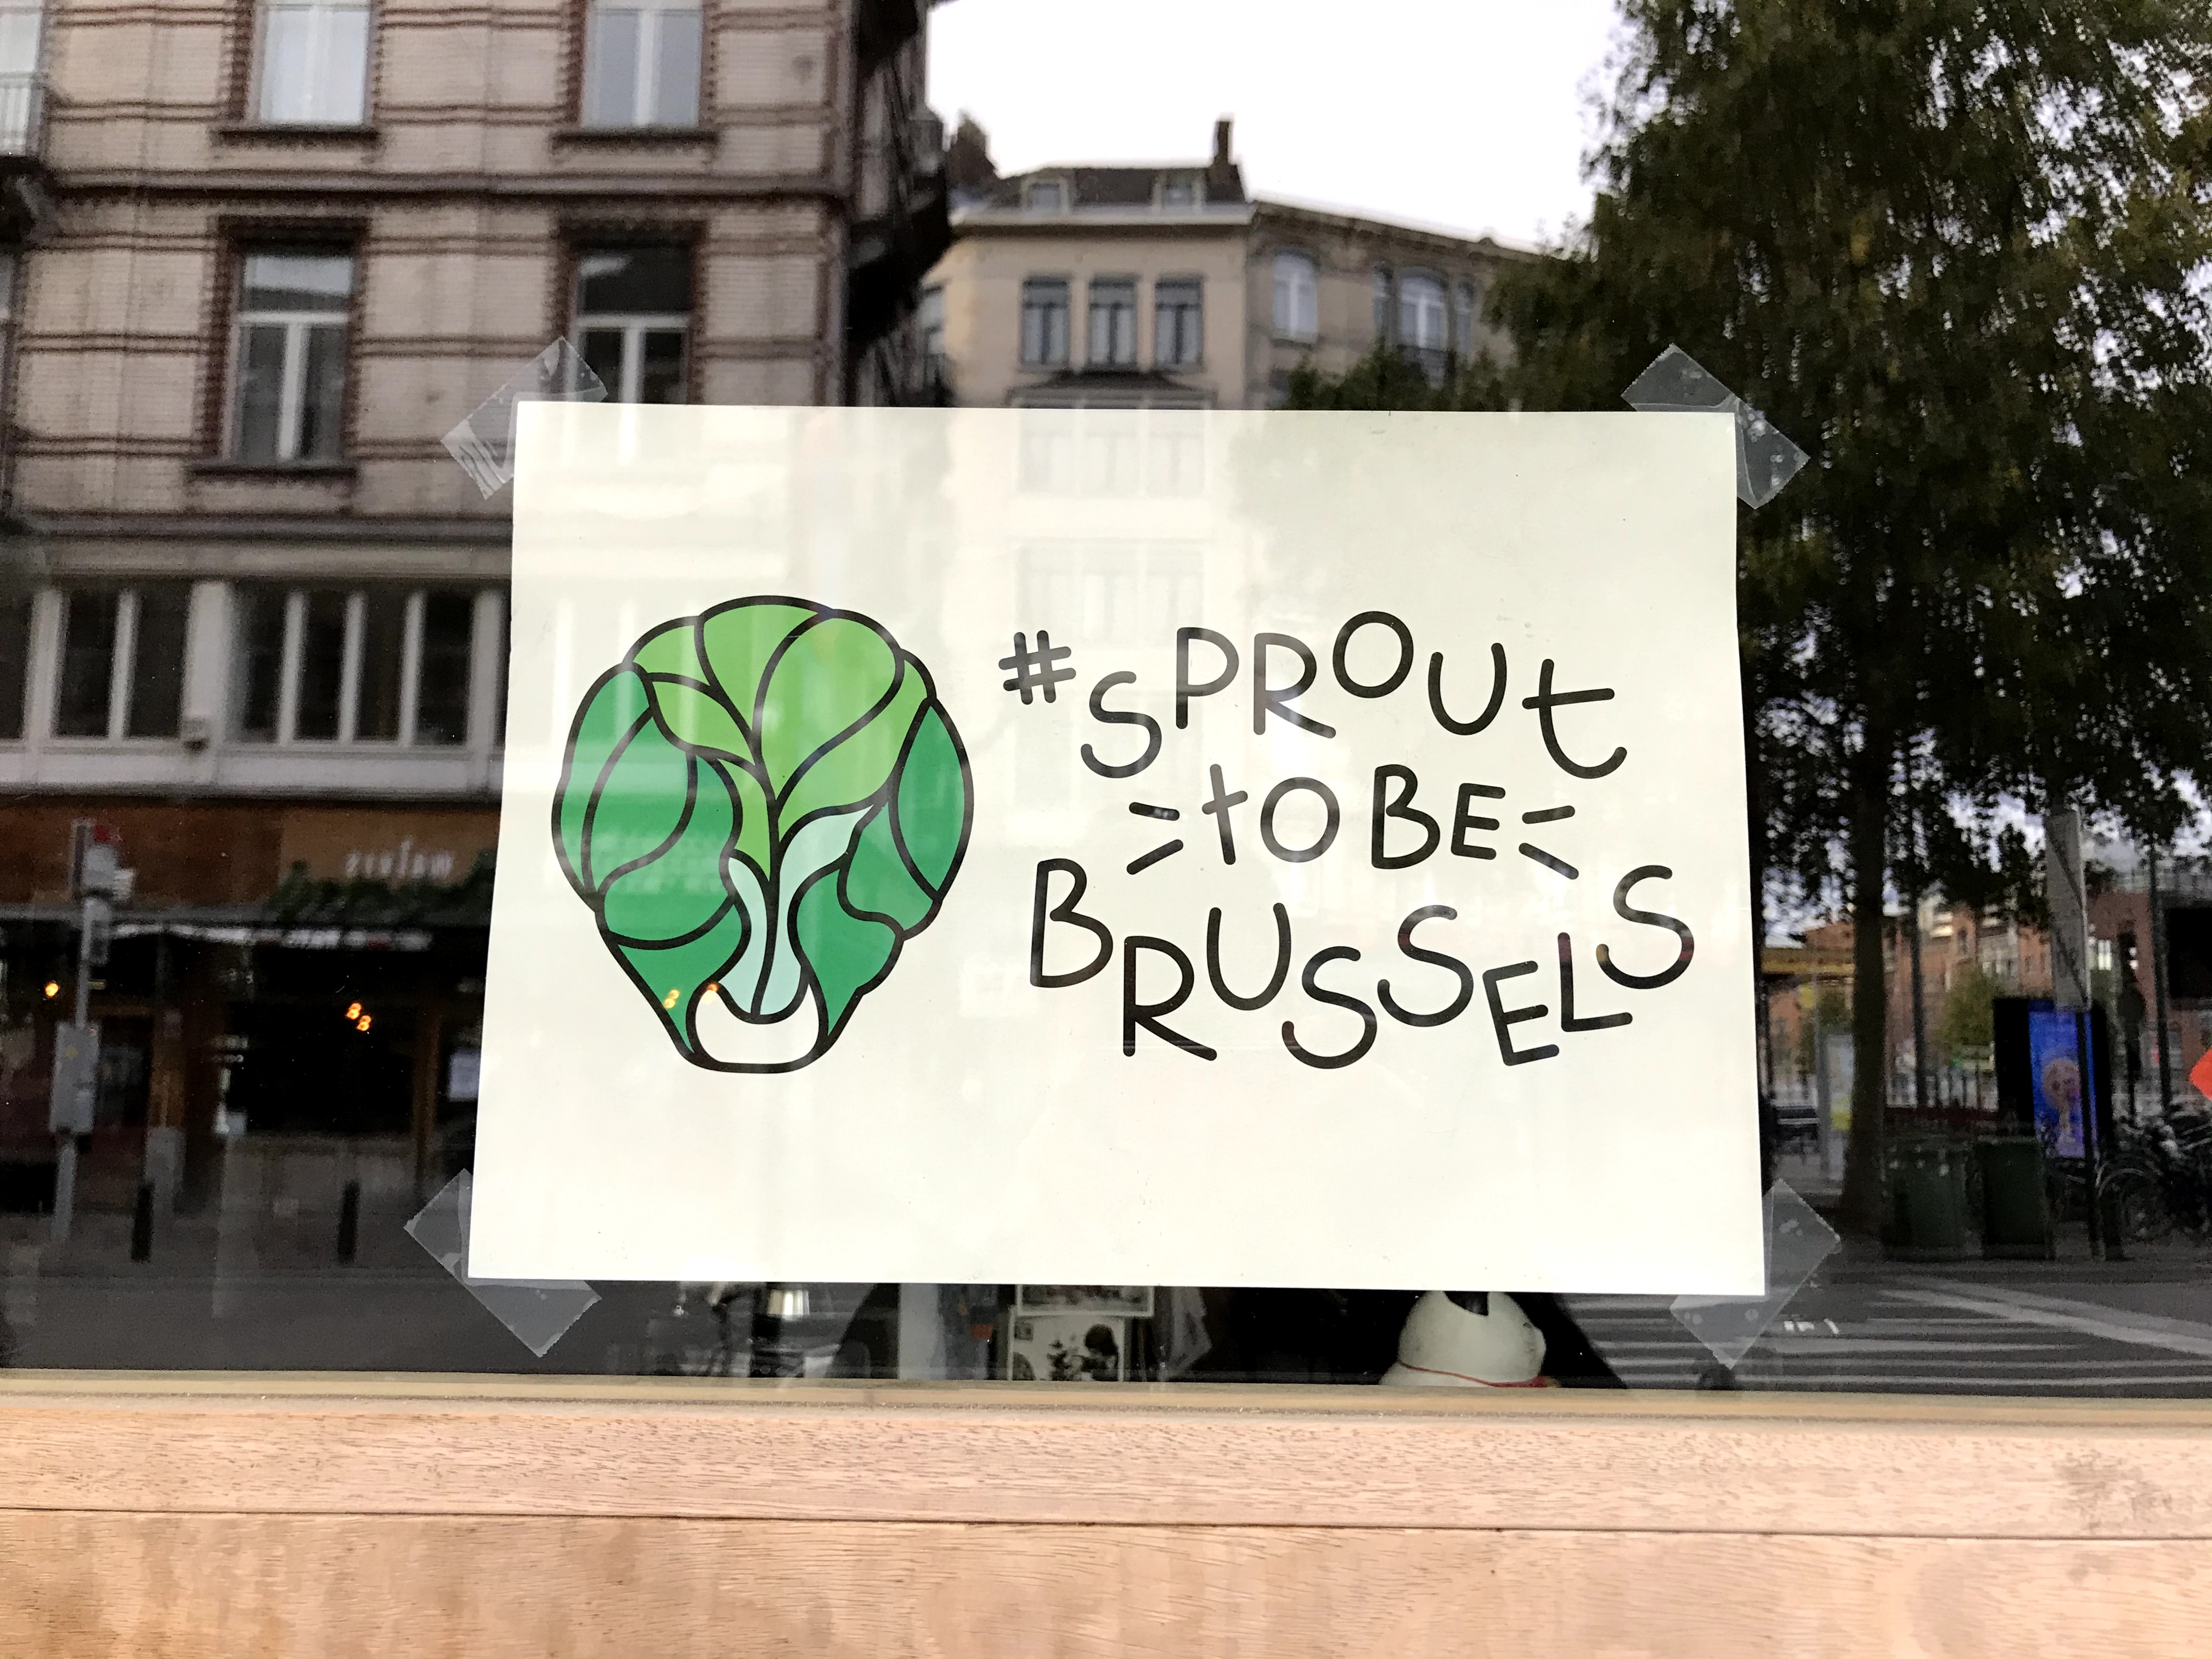 #SPROUt
tO BE
BRUSSELS